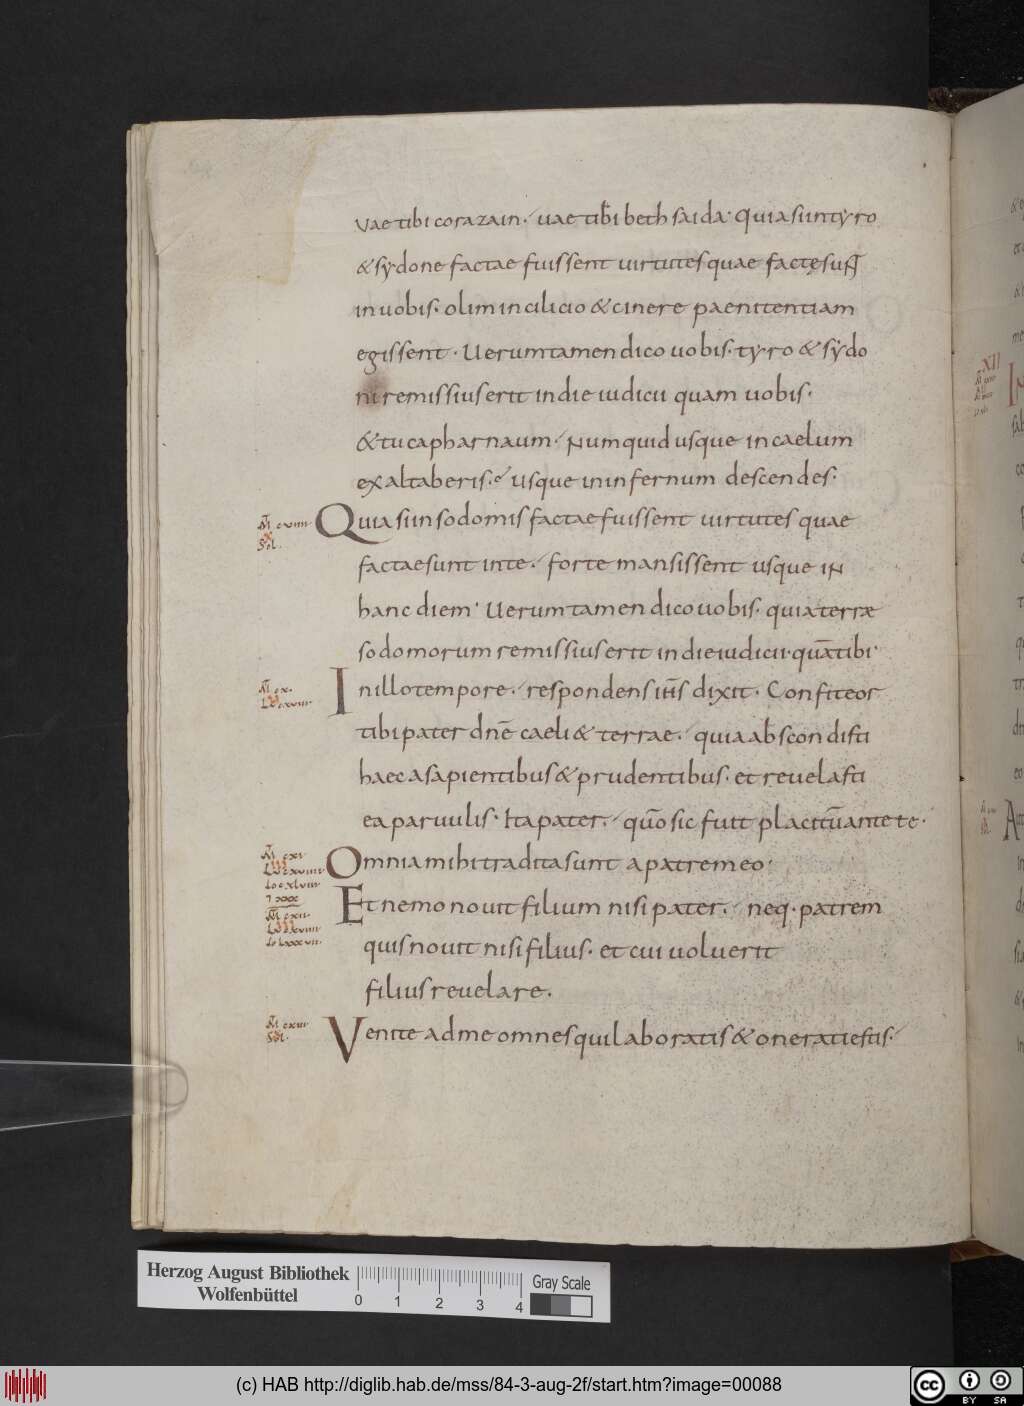 Vae tibi corazain. uae tibi bethsaida. Quia si in tyro
& sydone factae fuissent uirtutes quae factę suɴ̄
in uobis. olim in cilicio & cinere paenitentiam
egissent. Uerumtamen dico uobis. tyro & sydo
ni remissius erit in die iudicii quam uobis.
& tu capharnaum. Numquid usque in caelum
exaltaberis. usque in infernum descendes.
Quia si in sodomis factae fuissent uirtutes quae
factae sunt in te. forte mansissent usque in
hanc diem. Uerumtamen dico uobis. quia terræ
sodomorum remissius erit in die iudicii. quā tibi.
In illo tempore. respondens ih̄s dixit. Confiteor
tibi pater dn̄e caeli & terrae. quia abscondisti
haec a sapientibus & prudentibus. et reuelasti
ea paruulis. Ita pater. quō sic fuit placitū ante te.
Omnia mihi tradita sunt a patre meo.
Et nemo nouit filium nisi pater. neq. patrem
quis nouit nisi filius. et cui uoluerit
filius reuelare.
Venite ad me omnes qui laboratis & onerati estis.
Herzog August Bibliothek
Wolfenbüttel
0 1 2 3 4
Gray Scale
(c) HAB http://diglib.hab.de/mss/84-3-aug-2f/start.htm?image=00088
cc BY SA